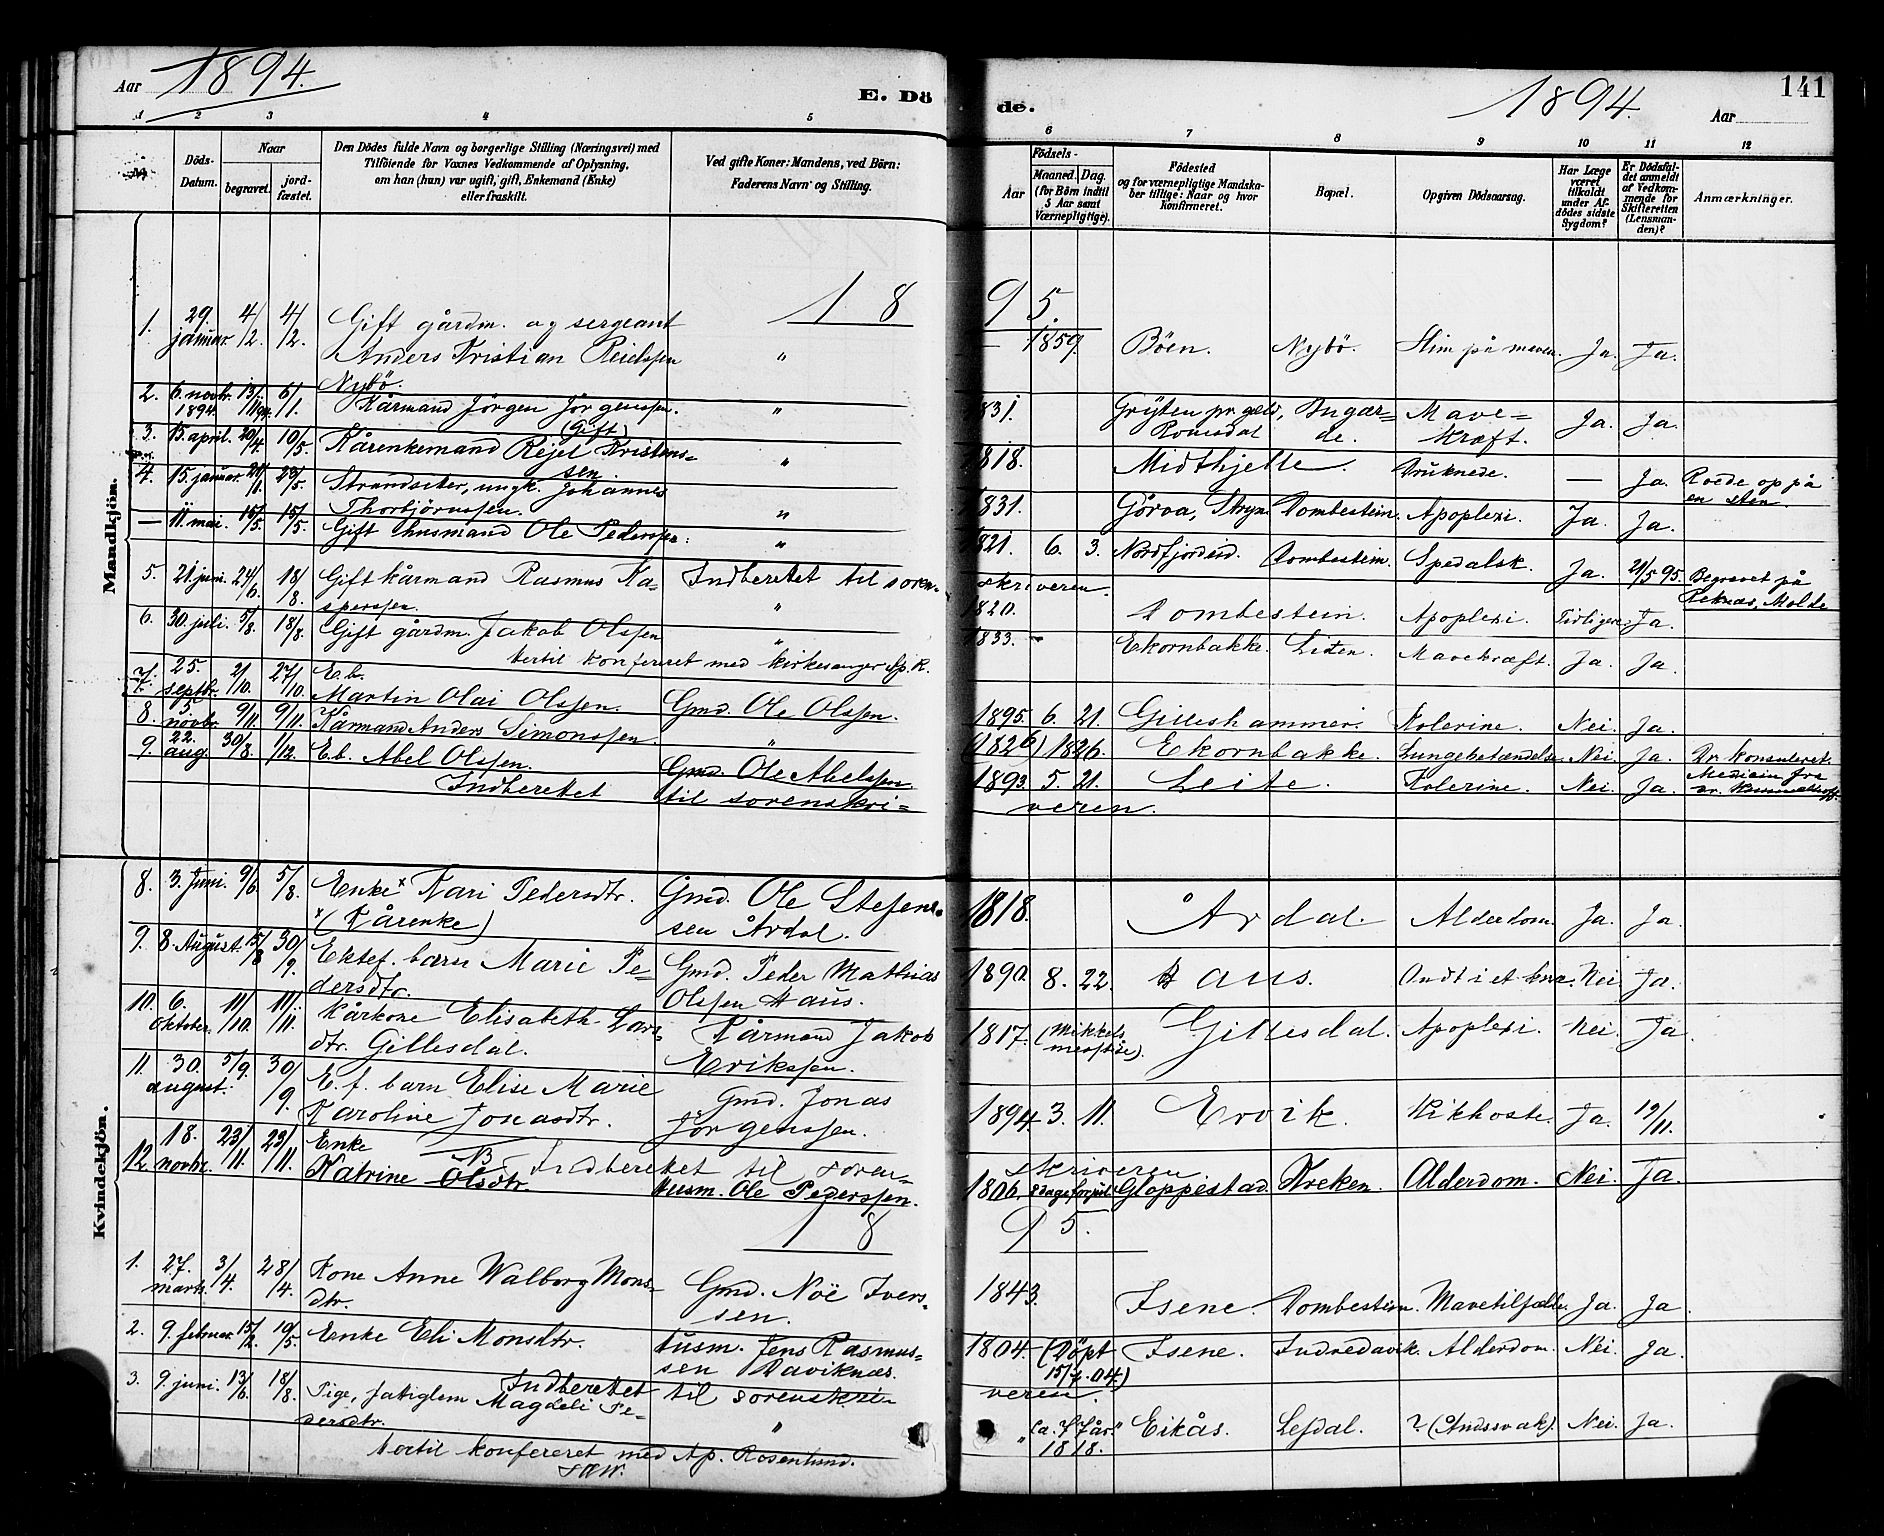 Aar 1894. E. Dö
de. 1894. Aar 141
1 2 3 4 5
6 7 8 9 10 11 12
Döds-Datum. Naar begravet. jordfæstet.
Den Dödes fulde Navn og borgerlige Stilling (Næringsvei) med
Tilföiende for Voxnes Vedkommende af Oplysning,
om han (hun) var ugift, gift, Enkemand (Enke)
eller fraskilt.
Ved gifte Koner: Mandens, ved Börn:
Faderens Navn og Stilling.
Födsels-
Aar Maaned. Dag.
(for Börn indtil
5 Aar samt
Værnepligtige).
Födested
og for værnepligtige Mandska-
ber tillige: Naar og hvor
konfirmeret.
Bopæl.
Opgiven Dödsaarsag.
Har Læge
været
tilkaldt
under Af-
dödes sidste
Sygdom?
Er Dödsfal-
det anmeldt
af Vedkom-
mende for
Skifteretten
(Lensman-
den)?
Anmærkninger.
Mandkjön.
18 95.
1. 29. januar. 4/2. 4/2. Gift gårdm. og sergeant
Anders Kristian Reielssen " 1859. Böen. Nybö. Slim på maven. Ja. Ja.
Nybö.
2. 6. novbr. 1894. 13/11 94. 6/1. Kårmand Jörgen Jörgenssen. " 1831. Gryten pr.geld, Romsdal Ingær-de. Mave-kræft. Ja. Ja.
(Gift)
3. 15. april. 20/4. 10/5. Kårenkemand Rejel Kristens-
sen. " 1818. Midthjelle. Druknede. — Ja. Roede op på en sten.
4. 15. januar. 21/1. 29/5. Strandsitter, ungk. Johannes
Thorbjörnssen. " 1831. Görva, Stryn. Dombestein. Apoplexi. Ja. Ja.
— 11. mai. 15/5. 15/5. Gift husmand Ole Pederssen. " 1821. 6. 3. Nordfjordeid. Dombestein. Spedalsk. Ja. 21/5 95. Begravet på Reknæs, Molde
5. 21. juni. 24/6. 18/8. Gift kårmand Rasmus Ka-
sperssen. Indberettet til soren-
skriveren.
" 1820. Dombestein. Apoplexi. Tidligere. Ja.
6. 30. juli. 5/8. 18/8. Gift gårdm. Jakob Olssen " 1833. – Ekornbakke. Liden. Mavekræft. Ja. Ja.
Hertil konfereret med kirkesanger Ap. R.
7. 25. septbr. 2/10. 27/10. E.b.
Martin Olai Olssen. Gmd. Ole Olssen. 1895. 6. 21. Gilleshammer. Kolerine. Nei. Ja.
8. 5. novbr. 9/11. 9/11. Kårmand Anders Simonssen. " (1826) 1826. Ekornbakke. Lungebetændelse. Nei. Ja. Dr. konsuleret.
9. 22. aug. 30/8. 1/12. E.b. Abel Olssen. Gmd. Ole Abelssen. 1893. 5. 21. Leite. Kolerine. Nei. Ja. Medicin fra dr.
Indberettet til sorenskri-
veren.
Kvindekjön.
8. 3. Juni. 9/6. 5/8. Enke x Kari Pedersdtr.
x (Kårenke) Gmd. Ole Stefens-
sen Årdal. 1818. Årdal. Alderdom. Ja. Ja.
9. 8. August. 15/8 30/9. Ektef. barn Marie Pe-
dersdtr. Gmd. Peder Mathias
Olssen Haus. 1890. 8. 22. Haus. Ondt i et knæ. Nei. Ja.
10. 6. oktober. 11/10. 11/11. Kårkone Elisabeth Lars-
dtr. Gillesdal. Kårmand Jakob
Erikssen. 1817. (Mikkels-messtid). Gillesdal. Apoplexi. Nei. Ja.
11. 30. august. 5/9. 30/9. E.f. barn Elise Marie
Karoline Jonasdtr. Gmd. Jonas
Jörgenssen. 1894. 3. 11. Ervik. Kikhoste. Ja. 19/11.
12. 18. novbr. 23/11. 23/11. Enke
NB. Indberettet til soren-
skriveren
Katrine Olsdtr. Husm. Ole Pederssen. 1806. Gloppestad. Kreken. Alderdom. Nei. Ja.
18 95.
1. 27. marts. 3/4. 28/4. Kone Anne Walborg Mons-
dtr. Gmd. Nöe Ivers-
sen. 1843. Isene. Dombestein. Mavetilfælde. Ja. Ja
2. 9. februar. 15/2. 10/5. Enke Eli Monsdtr. Husm. Jens Rasmus-
sen Daviknæs. 1804. (Döpt 15/7.04.) Isene. Indredavik. Alderdom. Nei. Ja.
3. 9. juni. 13/6. 18/8. Indberettet til sorenskri-
veren.
Pige, fatiglem Magdeli Pe-
dersdtr. " " (ca. 77 år.) 1818. Eikås. Lefdal. ? (Åndssvak). Nei. Ja.
Hertil konfereret med Ap. Rosenlund.